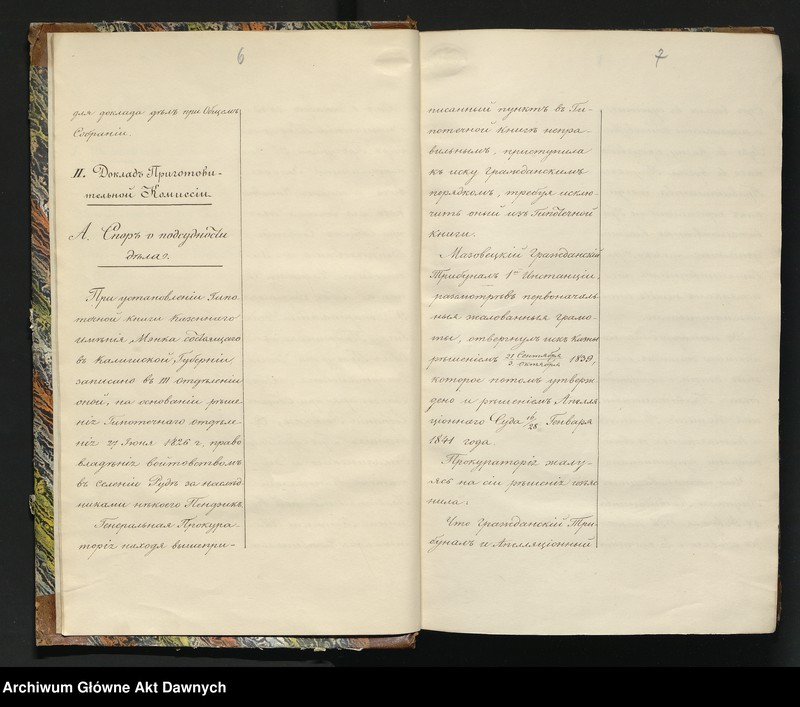 6
для доклада дѣлъ при Общемъ
Собраніи.
II. Докладъ Приготови-
тельной Комиссіи.
А. Споръ о подсудности
дѣла.
При установленіи Гипо-
течной книги Казеннаго
имѣнія Мэнка состоящаго
въ Калишской Губерніи
записано въ III отдѣленіи
оной, на основаніи рѣше-
нія Гипотечнаго отдѣле-
нія 27 Іюня 1826 г, право
владѣнія войтовствомъ
въ селеніи Рудѣ за наслѣд
никами нѣкоего Пендзикъ
Генеральная Прокура-
торія находя вышепри-
7
писанный пунктъ въ Ги-
потечной книгѣ непра-
вильнымъ, приступила
къ иску Гражданскимъ
порядкомъ, требуя исклю-
чить оный изъ Гипотечной
книги.
Мазовецкій Гражданскій
Трибуналъ 1ой Инстанціи,
разсмотрѣвъ первоначаль
ныя жалованныя грамо-
ты, отвергнулъ искъ Казны
рѣшеніемъ 21 Сентября / 3 Октября 1839,
которое потомъ утверж
дено и рѣшеніемъ Апелля
ціоннаго Суда 16/28 Генваря
1841 года.
Прокураторія жалу-
ясь на сіи рѣшенія изъяс
нила:
Что Гражданскій Три-
буналъ и Апелляціонный
Archiwum Główne Akt Dawnych